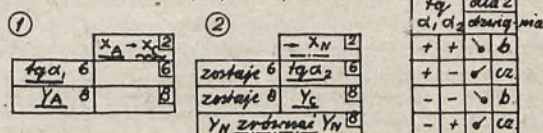 ① ②
x_A → x_C 2
tg α₁ 6 6
Y_A 8 8
→ x_N 2
zostaje 6 tg α₂ 6
zostaje 8 Y_C 8
Y_N zrównać Y_N 8
tg dla 2
α₁ α₂ dźwignia
+ + b
+ - cz
- - b
- + cz